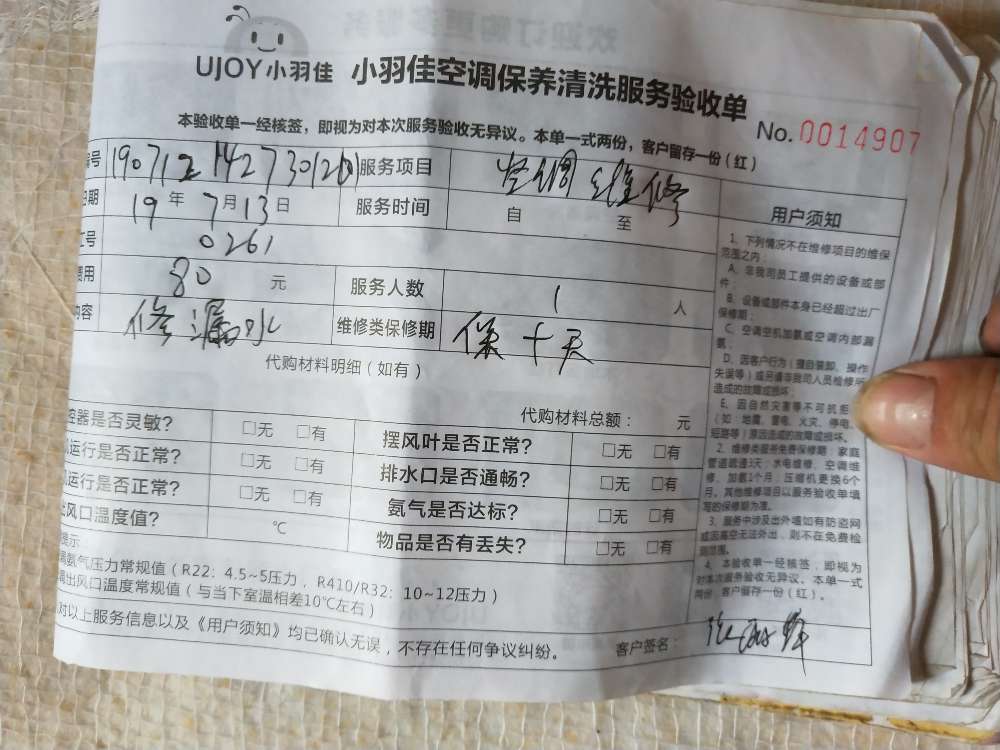 UJOY小羽佳 小羽佳空调保养清洗服务验收单
No.0014907
本验收单一经核签，即视为对本次服务验收无异议。本单一式两份，客户留存一份（红）
编号 服务项目 空调维修
日期 19年7月13日 服务时间 自 至
工号 0261
费用 80 元 服务人数 1 人
内容 修漏水 维修类保修期 保十天
代购材料明细（如有）
代购材料总额： 元
控器是否灵敏？ □无 □有 摆风叶是否正常？ □无 □有
运行是否正常？ □无 □有 排水口是否通畅？ □无 □有
运行是否正常？ □无 □有 氨气是否达标？ □无 □有
出风口温度值？ ℃ 物品是否有丢失？ □无 □有
提示：
氨气压力常规值（R22：4.5~5压力，R410/R32：10~12压力）
出风口温度常规值（与当下室温相差10℃左右）
对以上服务信息以及《用户须知》均已确认无误，不存在任何争议纠纷。 客户签名：
用户须知
1、下列情况不在维修项目的维保
范围之内：
A、非我司员工提供的设备或部
件；
B、设备或部件本身已经超过出厂
保修期；
C、空调空机加氨或空调内部漏
氨；
D、因客户行为（擅自装卸、操作
失误等）或另请非我司人员检修所
造成的故障或损坏；
E、因自然灾害等不可抗拒
（如：地震、雷电、火灾、停电、
短路等）原因造成的故障或损坏。
2、维修类服务免费保修期：家庭
管道疏通3天；水电维修、空调维
修、加氨1个月；压缩机更换6个
月。其他维修项目以服务验收单填
写的保修期为准。
3、服务中涉及出外墙如有防盗网
或因高空无法外出，则不在免费检
测范围。
4、本验收单一经核签，即视为
对本次服务验收无异议。本单一式
两份，客户留存一份（红）。